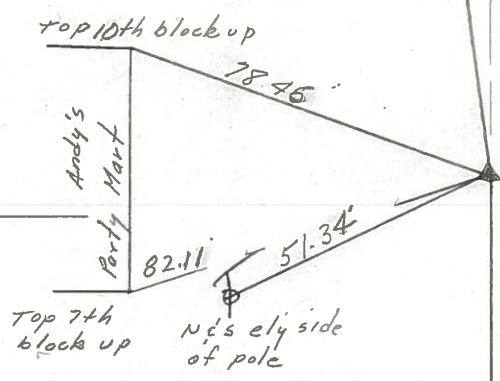 Top 10th block up
78.46
Andy's
Party Mart
82.11'
51.34'
Top 7th
block up
N&s ely side
of pole